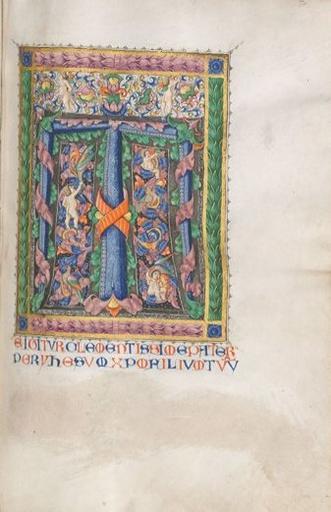 T
E IGITVR CLEMENTISSIME PATER
PER IHESVM XPM FILIVM TVV